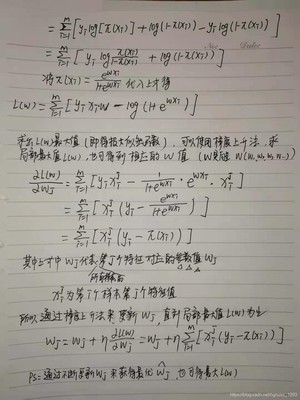 = Σ_{i=1}^{m} [y_i log[π(x_i)] + log(1-π(x_i)) - y_i log(1-π(x_i))]
= Σ_{i=1}^{m} [y_i log π(x_i)/(1-π(x_i)) + log(1-π(x_i))]
将 π(x_i) = e^{wx_i}/(1+e^{wx_i}) 代入上式得
L(w) = Σ_{i=1}^{m} [y_i x_i w - log(1+e^{wx_i})]
求出L(w)最大值(即得极大似然函数), 可以使用梯度上升法, 求
局部最大值L(w), 也可得到相应的W值
∂L(w)/∂w_j = Σ_{i=1}^{m} [y_i x_i^j - 1/(1+e^{wx_i}) · e^{wx_i} · x_i^j]
= Σ_{i=1}^{m} [x_i^j (y_i - e^{wx_i}/(1+e^{wx_i}))]
= Σ_{i=1}^{m} [x_i^j (y_i - π(x_i))]
其中上式中 w_j 代表第j个特征对应的参数值 w_j
x_i^j 为第i个样本第j个特征值
所以通过梯度上升法来更新w_j, 直到局部最大值L(w)为止
w_j = w_j + η ∂L(w)/∂w_j = w_j + η Σ_{i=1}^{m} [x_i^j (y_i - π(x_i))]
PS: 通过不断更新w_j来获得最优ŵ_j, 也可得最大L(w)